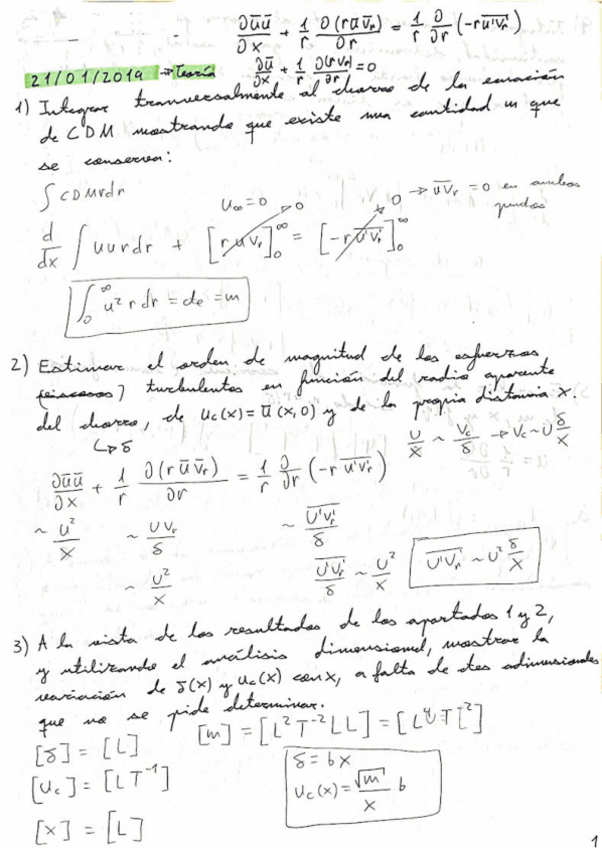 ∂ūū/∂x + 1/r ∂(r ū v̄r)/∂r = 1/r ∂/∂r (-r u'v'r)
21/01/2019 → Teoría
∂ū/∂x + 1/r ∂(r v̄r)/∂r = 0
1) Integrar tranversalmente al chorro de la ecuación
de CDM mostrando que existe una cantidad m que
se conserva:
∫ CDM r dr
u∞ = 0
→ 0
0 → u v̄r = 0 en ambos
puntos
d/dx ∫ u u r dr + [r u vr]₀^∞ = [-r u'v'r]₀^∞
∫₀^∞ u² r dr = cte = m
2) Estimar el orden de magnitud de los esfuerzos
turbulentos en función del radio aparente
del chorro, de uc(x) = ū(x,0) y de la propia distancia x.
↳ δ
U/x ~ Vc/δ → Vc ~ U δ/x
∂ūū/∂x + 1/r ∂(r ū v̄r)/∂r = 1/r ∂/∂r (-r u'v'r)
~ U²/x ~ U vr/δ ~ U'Vr'/δ
~ U²/x
U'Vr'/δ ~ U²/x
U'Vr' ~ U² δ/x
3) A la vista de los resultados de los apartados 1 y 2,
y utilizando el análisis dimensional, mostrar la
variación de δ(x) y uc(x) con x, a falta de ctes adimensionales
que no se pide determinar.
[δ] = [L]
[m] = [L² T⁻² L L] = [L⁴ T⁻²]
[uc] = [L T⁻¹]
[x] = [L]
δ = b x
uc(x) = √m/x b
1